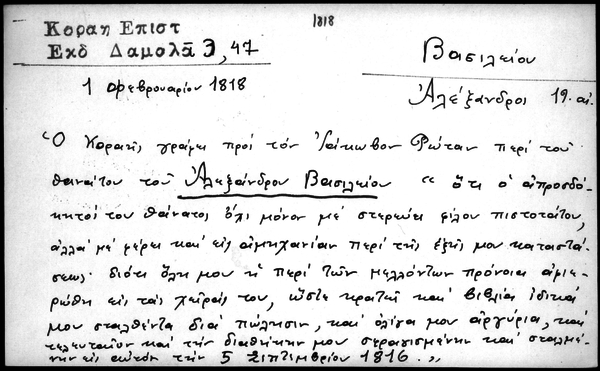 1818
Κοραη Επιστ
Εκδ Δαμολᾶ 3, 47
Βασιλείου
1 Φεβρουαρίου 1818
Ἀλέξανδρος 19. αἰ.
Ὁ Κοραῆς γράφει πρός τόν Ἰάκωβον Ρώταν περί τοῦ
θανάτου τοῦ Ἀλεξάνδρου Βασιλείου « ὅτι ὁ ἀπροσδό-
κητός του θάνατος ὄχι μόνον μέ στερεώνει φίλον πιστοτάτου,
ἀλλά μέ φέρει καί εἰς ἀμηχανίαν περί τῆς ἑξῆς μου καταστά-
σεως· διότι ὅλη μου ἡ περί τῶν μελλόντων πρόνοια ἀφιε-
ρώθη εἰς τάς χεῖράς του, ὥστε κρατεῖ καί βιβλία ἰδικά
μου σταλθέντα διά πώλησιν, καί ὀλίγα μου ἀργύρια, καί
τελευταῖον καί τήν διαθήκην μου σφραγισμένην καί σταλμέ-
νην εἰς αὐτόν τήν 5 Σεπτεμβρίου 1816. »